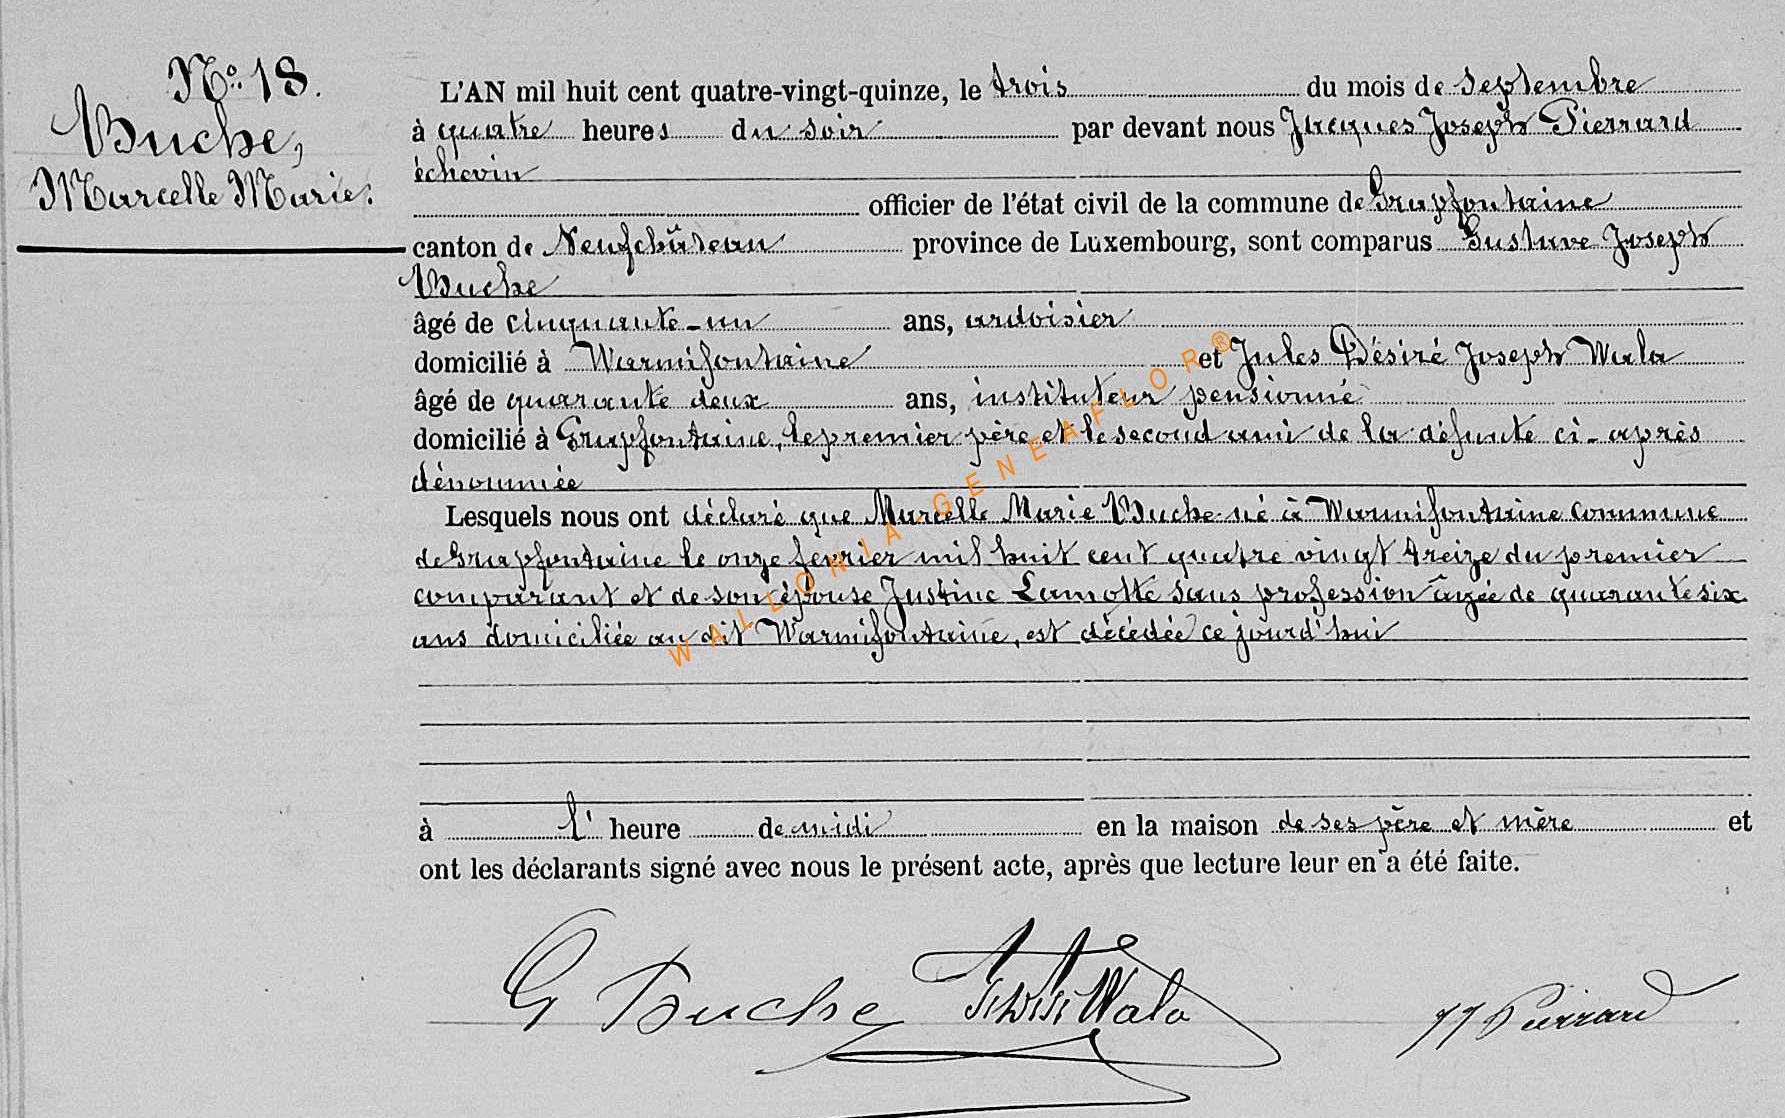 N° 18.
Buche,
Marcelle Marie.
L'AN mil huit cent quatre-vingt-quinze, le trois du mois de Septembre
à quatre heures du soir par devant nous Jacques Joseph Pierrard
échevin
officier de l'état civil de la commune de Grapfontaine
canton de Neufchâteau province de Luxembourg, sont comparus Gustave Joseph
Buche
âgé de cinquante-un ans, ardoisier
domicilié à Warmifontaine et Jules Désiré Joseph Wala
âgé de quarante deux ans, instituteur pensionné
domicilié à Grapfontaine, le premier père et le second ami de la défunte ci-après
dénommée
Lesquels nous ont déclaré que Marcelle Marie Buche né à Warmifontaine commune
de Grapfontaine le onze février mil huit cent quatre vingt treize du premier
comparant et de son épouse Justine Lamotte sans profession âgée de quarante six
ans domiciliée au dit Warmifontaine, est décédée ce jourd'hui
à l' heure de midi en la maison de ses père et mère et
ont les déclarants signé avec nous le présent acte, après que lecture leur en a été faite.
G Buche Wala JJ Pierrard
WALLONIA-GENEAFLOR®